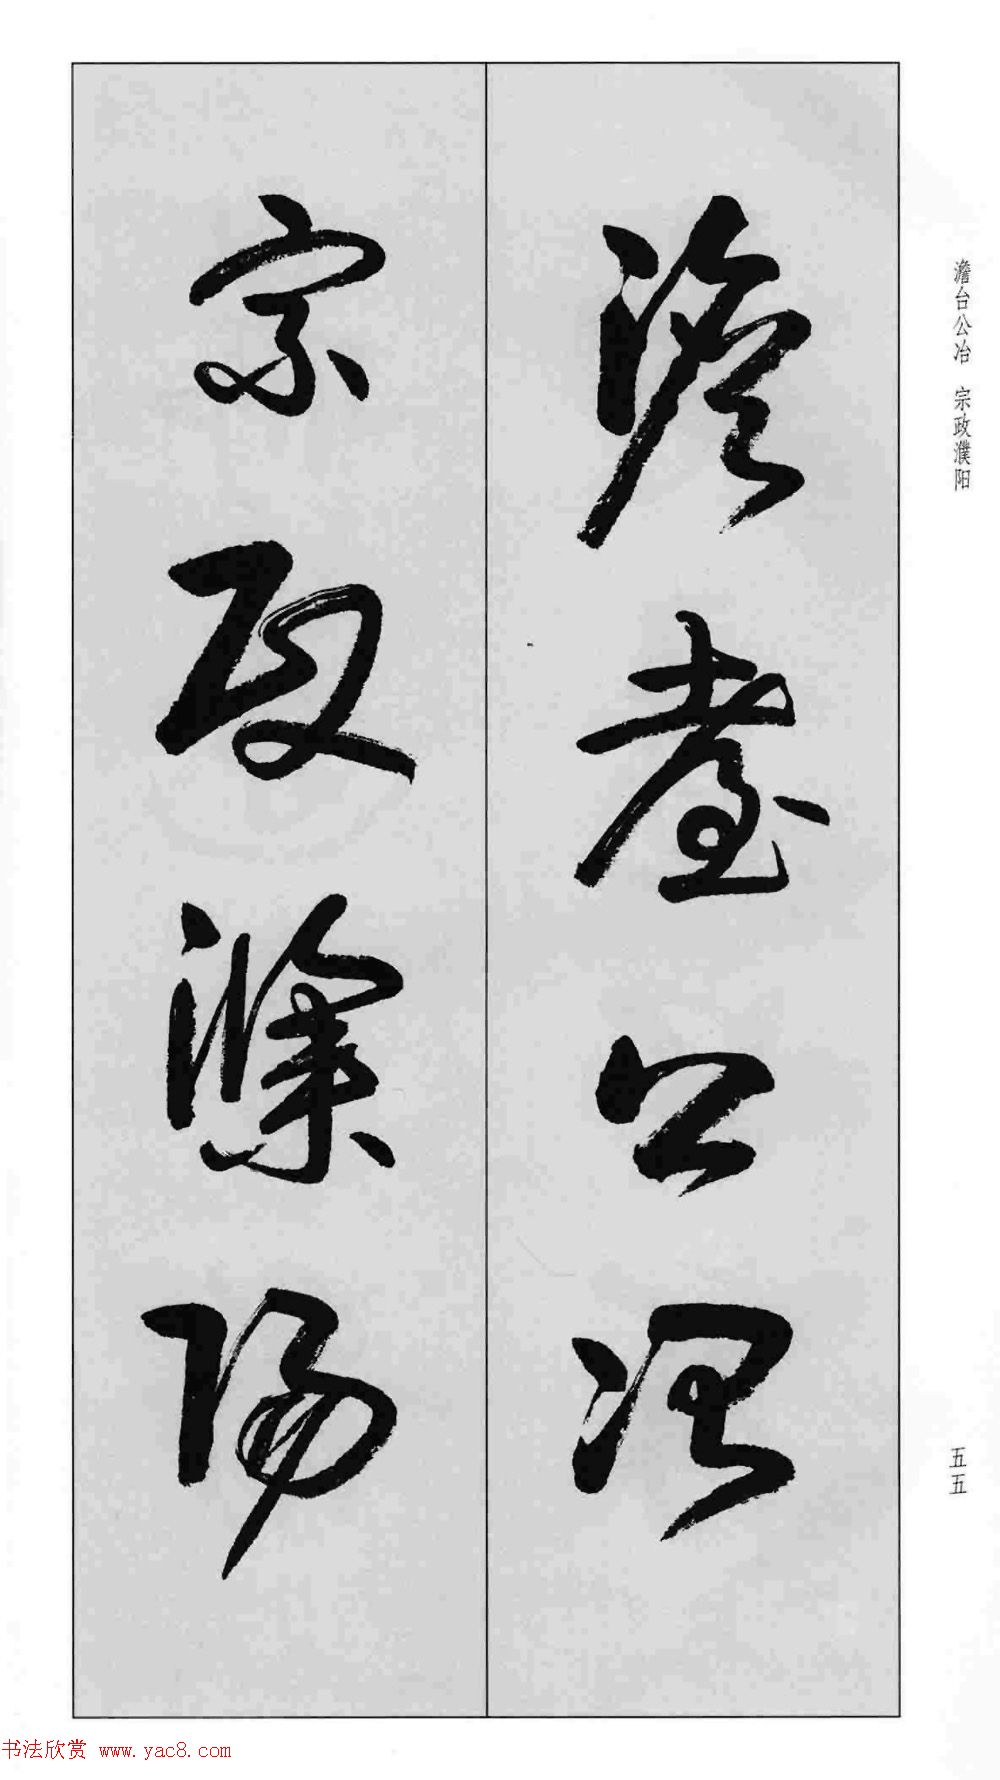 澹臺公冶
宗政濮陽
澹台公冶 宗政濮阳
五五
书法欣赏 www.yac8.com